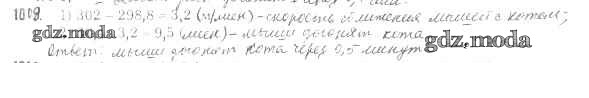 1009. 1) 302 – 298,8 = 3,2 (м/мин) – скорость сближения мышей с котом;
gdz.moda 3,2 = 9,5 (мин) – мыши догонят кота gdz.moda
Ответ: мыши догонят кота через 9,5 минут